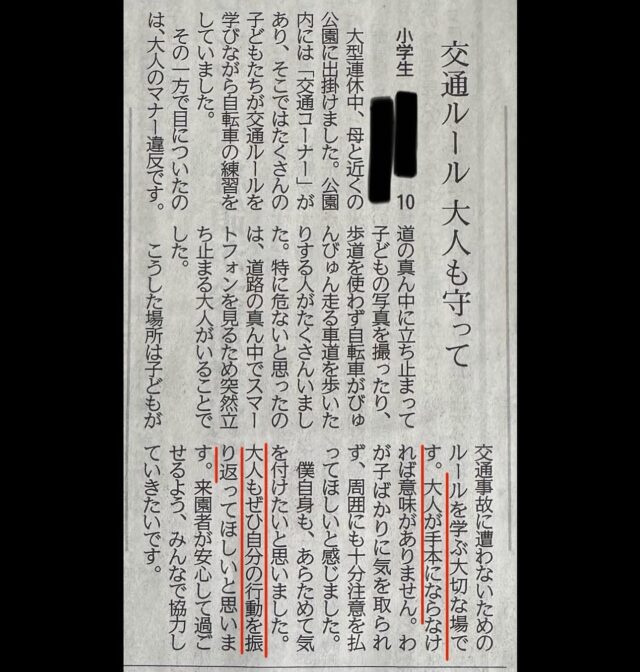 交通ルール 大人も守って
小学生
10
大型連休中、母と近くの
公園に出掛けました。公園
内には「交通コーナー」が
あり、そこではたくさんの
子どもたちが交通ルールを
学びながら自転車の練習を
していました。
その一方で目についたの
は、大人のマナー違反です。
道の真ん中に立ち止まって
子どもの写真を撮ったり、
歩道を使わず自転車がびゅ
んびゅん走る車道を歩いた
りする人がたくさんいまし
た。特に危ないと思ったの
は、道路の真ん中でスマー
トフォンを見るため突然立
ち止まる大人がいることで
した。
こうした場所は子どもが
交通事故に遭わないための
ルールを学ぶ大切な場で
す。大人が手本にならなけ
れば意味がありません。わ
が子ばかりに気を取られ
ず、周囲にも十分注意を払
ってほしいと感じました。
僕自身も、あらためて気
を付けたいと思いました。
大人もぜひ自分の行動を振
り返ってほしいと思いま
す。来園者が安心して過ご
せるよう、みんなで協力し
ていきたいです。